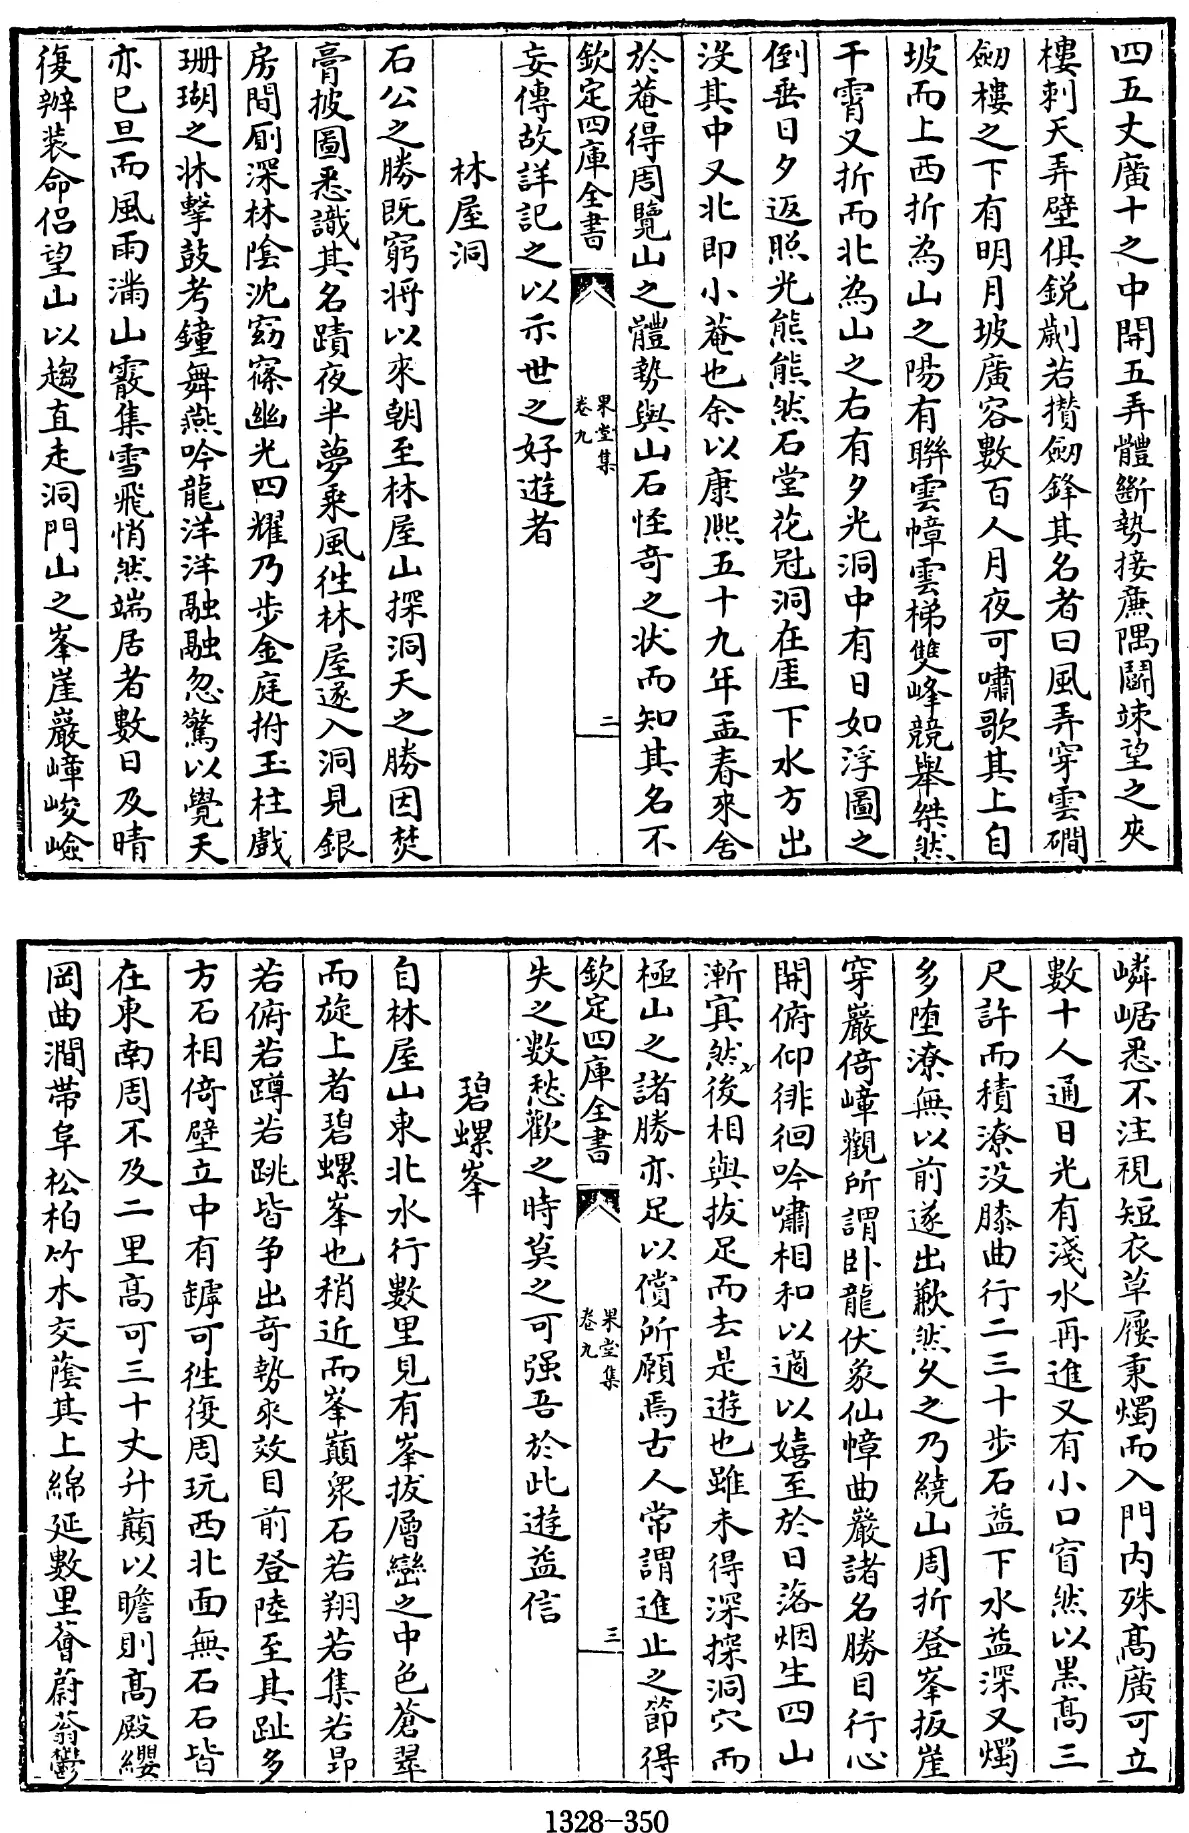 四五丈廣十之中開五弄體斷勢接亷隅鬬竦望之夾
樓刺天弄壁俱銳劌若攅劒鋒其名者曰風弄穿雲磵
劒樓之下有明月坡廣容數百人月夜可嘯歌其上自
坡而上西折為山之陽有聯雲幛雲梯雙峰競舉桀然
干霄又折而北為山之右有夕光洞中有日如浮圖之
倒垂日夕返照光熊熊然石堂花冠洞在厓下水方出
沒其中又北即小菴也余以康熙五十九年孟春來舍
於菴得周覽山之體勢與山石怪奇之狀而知其名不
欽定四庫全書
果堂集
卷九
二
妄傳故詳記之以示世之好遊者
林屋洞
石公之勝既窮將以來朝至林屋山探洞天之勝因焚
膏披圖悉識其名蹟夜半夢乘風徃林屋遂入洞見銀
房間廁深林陰沈窈窱幽光四耀乃步金庭拊玉柱戲
珊瑚之牀擊鼓考鐘舞燕吟龍洋洋融融忽驚以覺天
亦已旦而風雨滿山霰集雪飛悄然端居者數日及晴
復辦装命侶望山以趨直走洞門山之峯崖巖嶂峻嶮
嶙崌悉不注視短衣草屨秉燭而入門內殊髙廣可立
數十人通日光有淺水再進又有小口窅然以黑髙三
尺許而積潦沒膝曲行二三十步石益下水益深又燭
多堕潦無以前遂出歉然久之乃繞山周折登峯扳崖
穿巖倚嶂觀所謂卧龍伏象仙幛曲巖諸名勝目行心
開俯仰徘徊吟嘯相和以適以嬉至於日落烟生四山
漸冥然後相與拔足而去是遊也雖未得深探洞穴而
極山之諸勝亦足以償所願焉古人常謂進止之節得
欽定四庫全書
果堂集
卷九
三
失之數愁歡之時莫之可强吾於此遊益信
碧螺峯
自林屋山東北水行數里見有峯拔層巒之中色蒼翠
而旋上者碧螺峯也稍近而峯巔衆石若翔若集若昻
若俯若蹲若跳皆争出竒勢來效目前登陸至其趾多
方石相倚壁立中有罅可徃復周玩西北面無石石皆
在東南周不及二里髙可三十丈升巔以瞻則髙殿纓
岡曲澗帶阜松柏竹木交蔭其上綿延數里薈蔚蓊鬱
1328-350